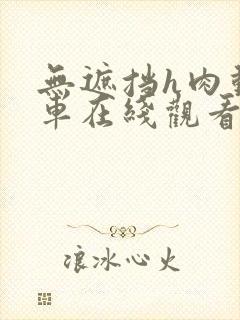 無遮挡h肉動
車在綫觀看
浪冰心火